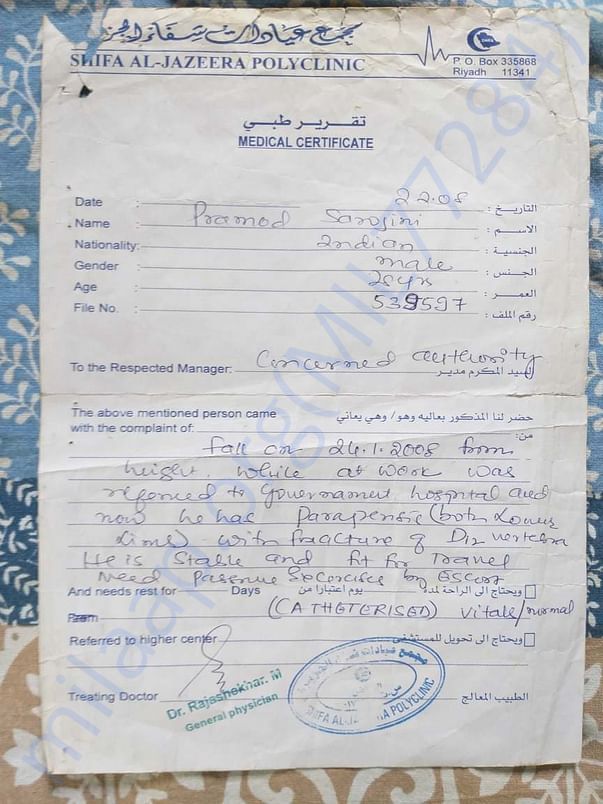 مجمع عيادات شفا الجزيرة
SHIFA AL-JAZEERA POLYCLINIC
P. O. Box 335868
Riyadh 11341
تقرير طبي
MEDICAL CERTIFICATE
Date : 22.08 التاريخ :
Name : Pramod Sarojini الاسم :
Nationality: Indian الجنسية :
Gender : male الجنس :
Age : العمر :
File No. : 539597 رقم الملف :
To the Respected Manager: Concerned authority السيد المكرم مدير
The above mentioned person came حضر لنا المذكور بعاليه وهو/ وهي يعاني
with the complaint of: من:
fall on 24.1.2008 from
height while at work was
referred to Government hospital and
now he has (both
with fracture of vertebra
He is stable and fit for Travel
Need by Escort
And needs rest for Days يوم اعتبارا من ويحتاج الى الراحة لمدة
From (CATHETERISED) vitals/normal
Referred to higher center ويحتاج الى تحويل للمستشفى
Treating Doctor الطبيب المعالج
Dr. Rajashekhar. M
General physician
SHIFA AL-JAZEERA POLYCLINIC
milaap.org